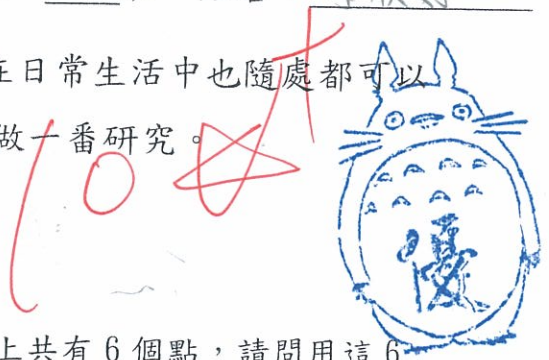 在日常生活中也隨處都可以
做一番研究。
10
優
上共有6個點,請問用這6